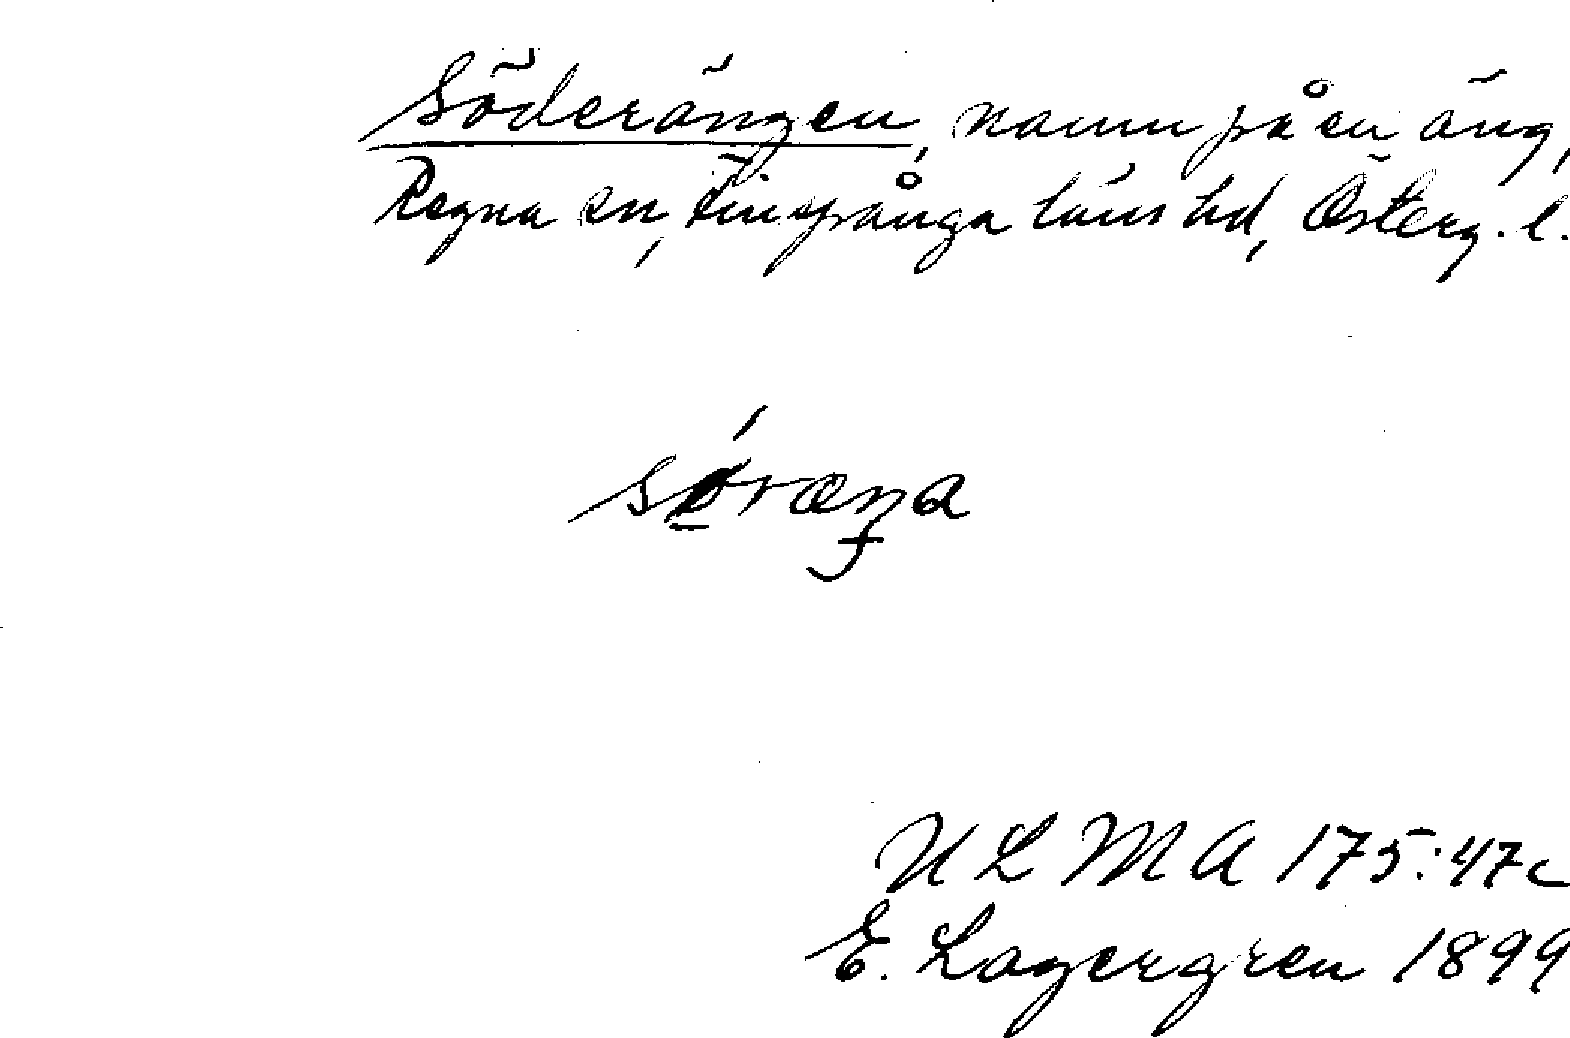 Söderängen, namn på en äng,
Regna sn, Finspånga läns hd, Österg. l.
sǿ̱ræŋa
U L M A 175:47c
E. Lagergren 1899